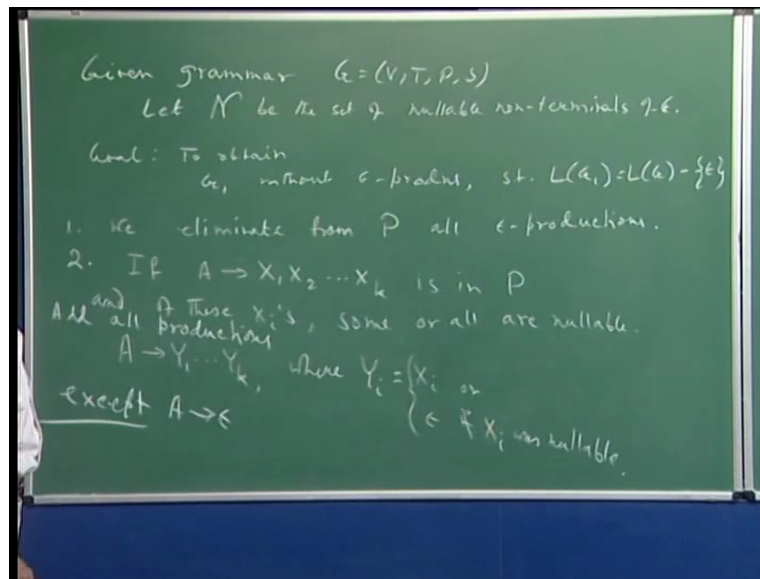 Given grammar G = (V, T, P, S)
Let N be the set of nullable non-terminals of G.
Goal: To obtain
G₁ without ε-prodns, st. L(G₁) = L(G) - {ε}
1. We eliminate from P all ε-productions.
2. If A → X₁ X₂ ... Xₖ is in P
and of these Xᵢ's, some or all are nullable.
Add all productions
A → Y₁ ... Yₖ, where Yᵢ = { Xᵢ or
except A → ε { ε if Xᵢ was nullable.